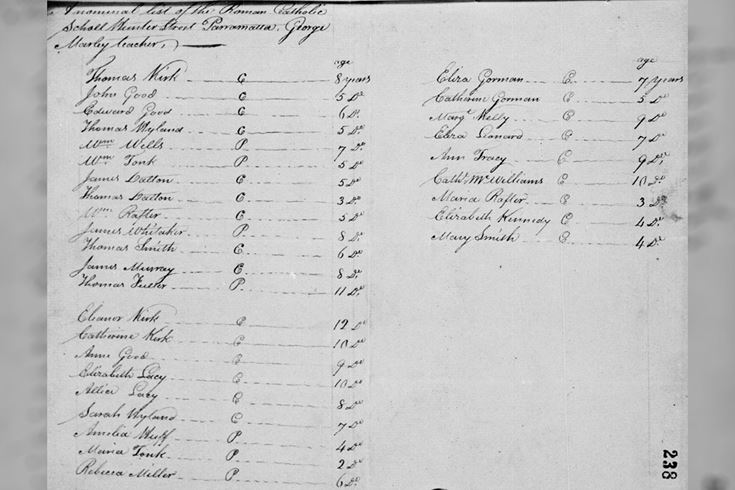 A nominal list of the Roman Catholic
Scholl Hunter Street Parramatta. George
Marley teacher,
age
Thomas Kirk C 8 years
John Good C 5 Do
Edward Good C 6 Do
Thomas Hyland C 5 Do
Wm Wells P 7 Do
Wm Tonk P 5 Do
James Latton C 5 Do
Thomas Latton C 3 Do
Wm Rafter C 5 Do
James Whitaker P 8 Do
Thomas Smith C 6 Do
James Murray C 8 Do
Thomas P 11 Do
Eleanor Kirk C 12 Do
Catherine Kirk C 10 Do
Anne Good C 9 Do
Elizabeth Lacy C 10 Do
Alice Lacy C 8 Do
Sarah Hyland C 7 Do
Amelia Huff P 4 Do
Maria Tonk P 2 Do
Rebecca Miller P 6 Do
age
Eliza Gorman C 7 years
Catherine Gorman C 5 Do
Margt Kelly C 9 Do
Eliza Leonard C 7 Do
Ann Tracy C 9 Do
Cathe McWilliams C 10 Do
Maria Rafter C 3 Do
Elizabeth Kennedy C 4 Do
Mary Smith C 4 Do
238